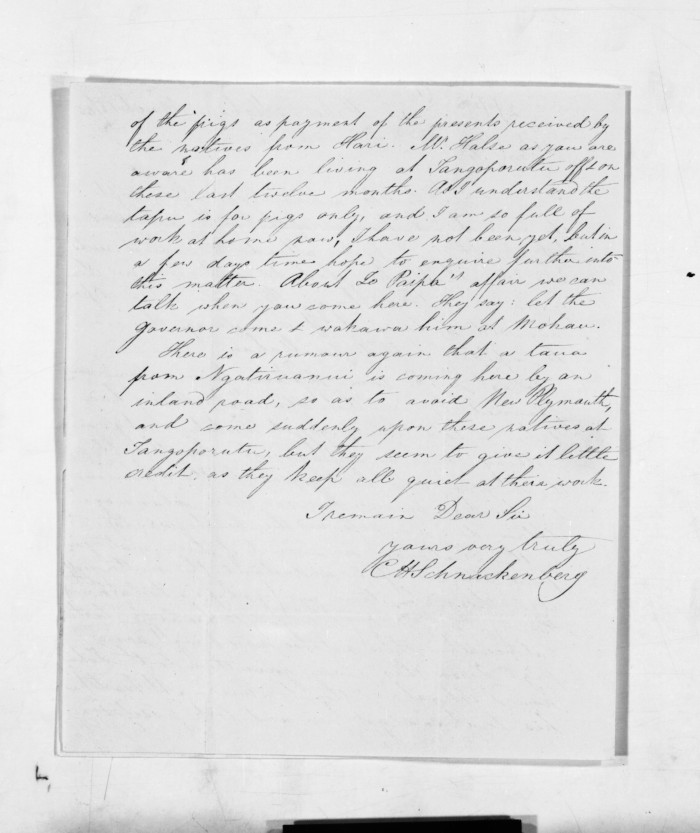 of the pigs as payment of the presents received by
the natives from Hari. Mr. Halse as you are
aware has been living at Tangoporutu off & on
these last twelve months. As I understand the
tapu is for pigs only, and I am so full of
work at home now, I have not been yet, but in
a few days time hope to enquire further into
this matter. About To Paipa's affair we can
talk when you come here. They say: let the
Governor come & wakawa him at Mohau.
There is a rumour again that a taua
from Ngatiruanui is coming here by an
inland road, so as to avoid New Plymouth,
and come suddenly upon these natives at
Tangoporutu, but they seem to give it little
credit, as they keep all quiet at their work.
I remain Dear Sir
yours very truly
CHSchnackenberg